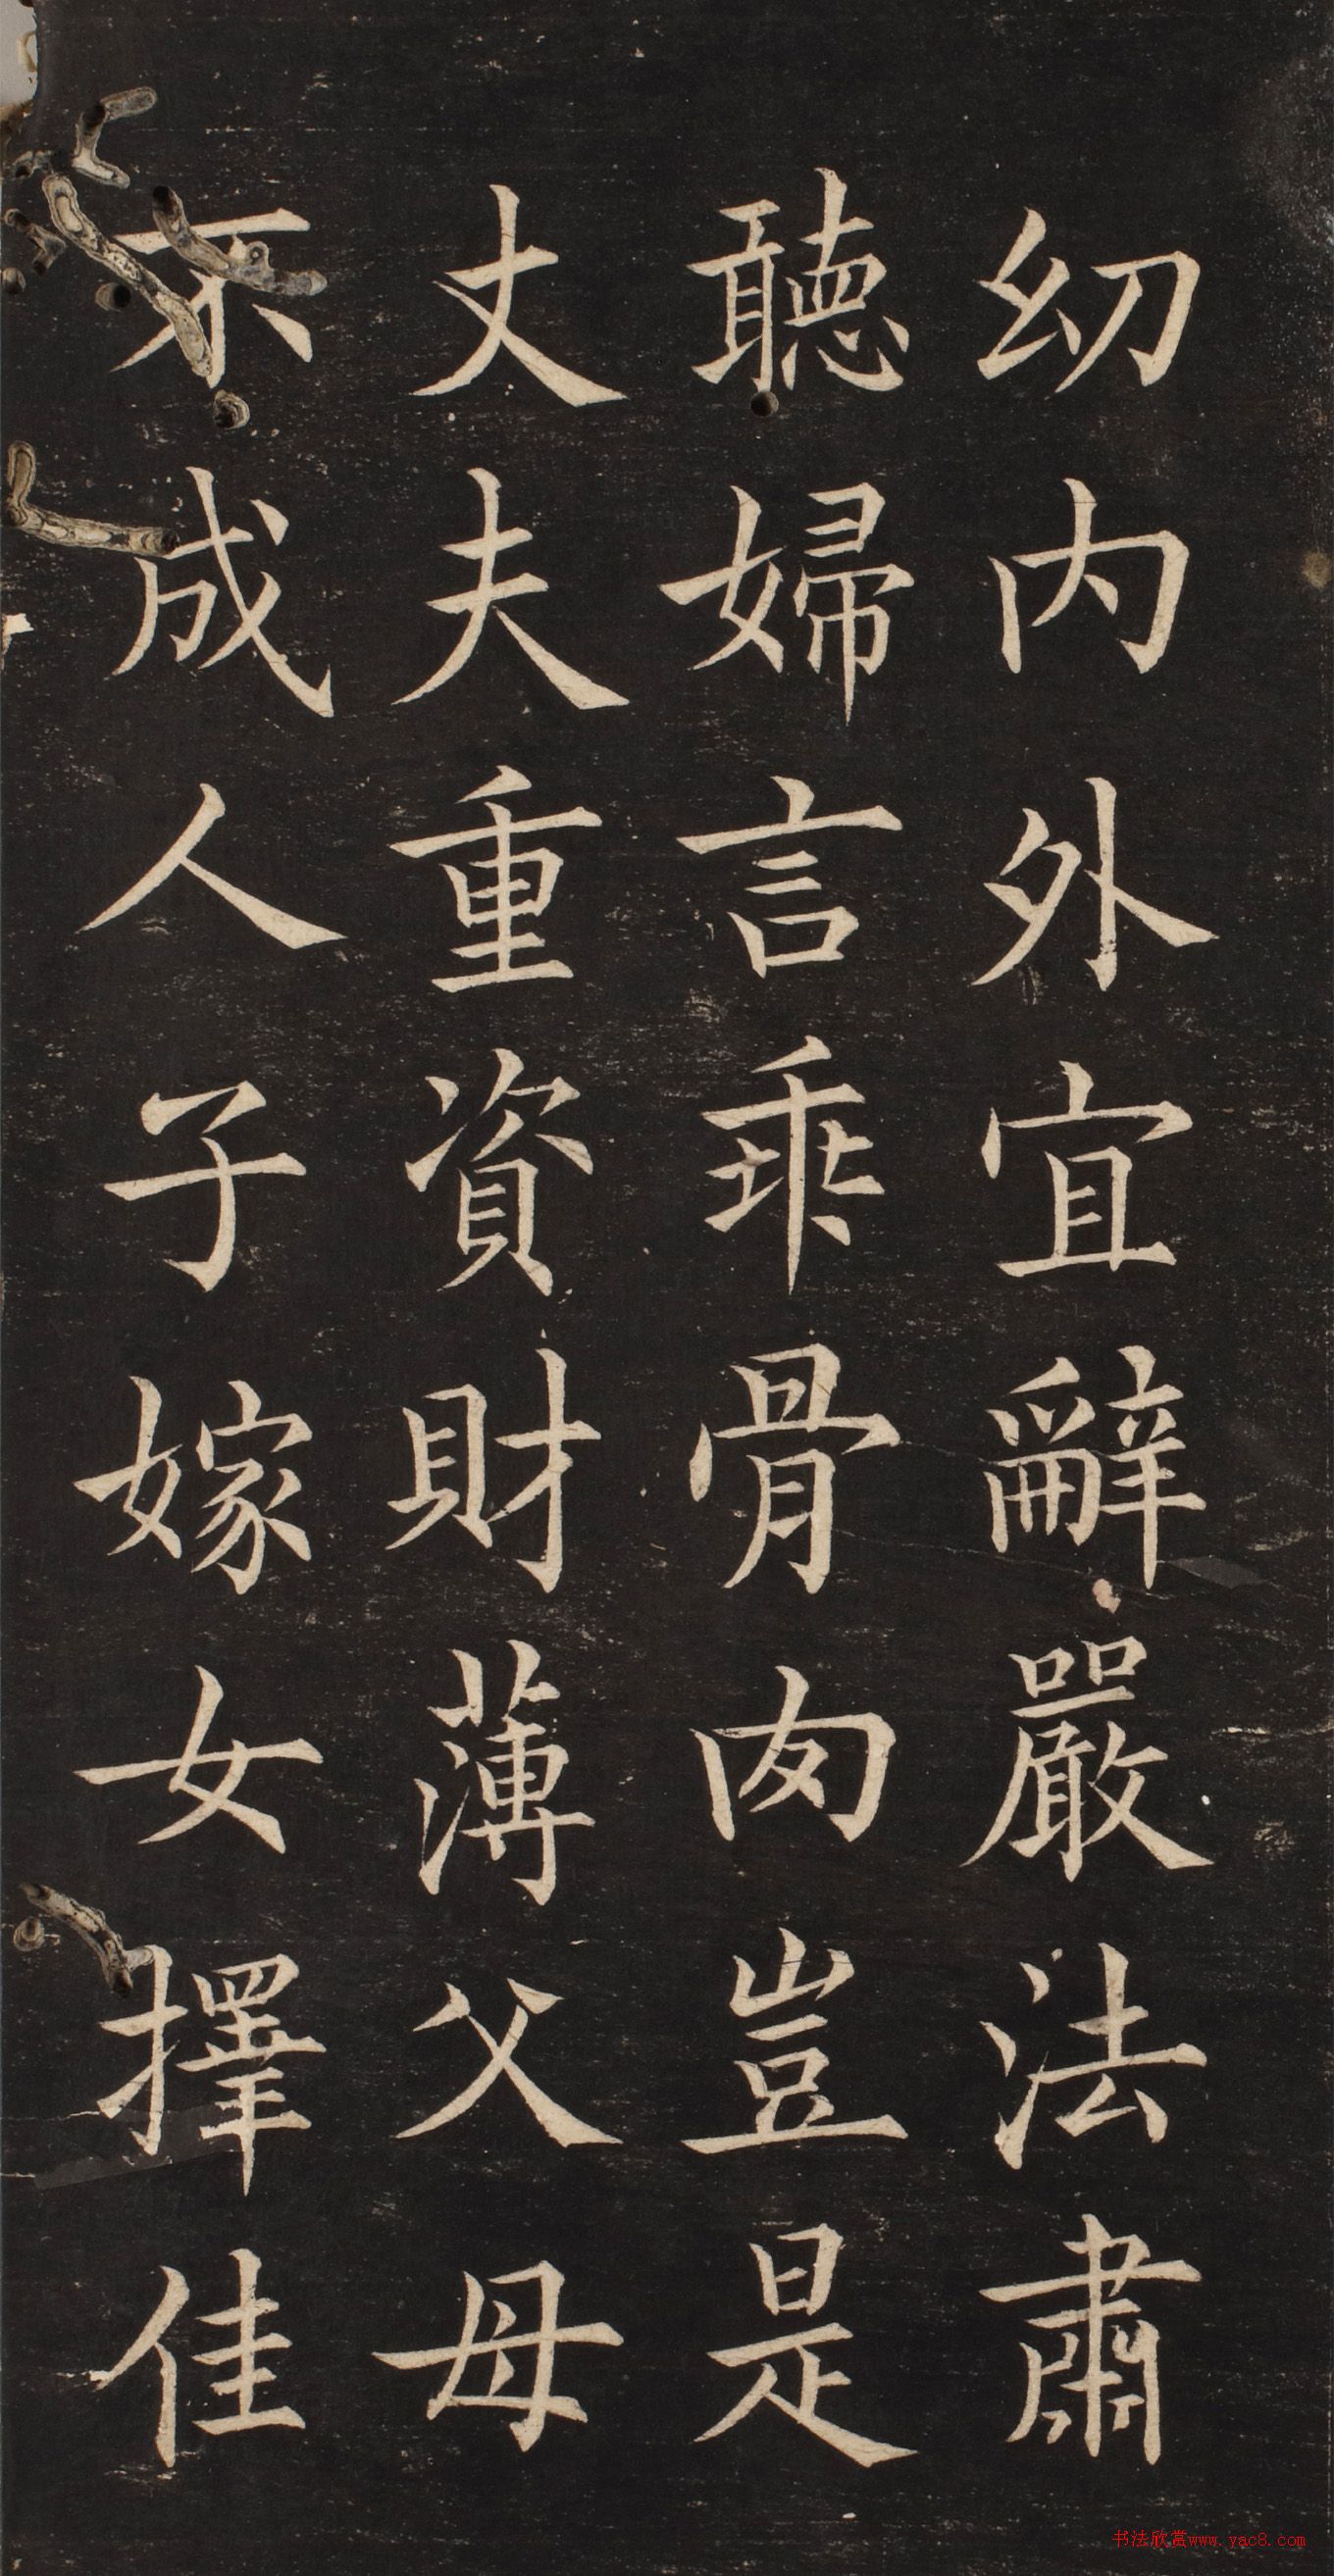 幼内外宜辭嚴法肅
聽婦言乖骨肉豈是
丈夫重資財薄父母
不成人子嫁女擇佳
书法欣赏www.yac8.com